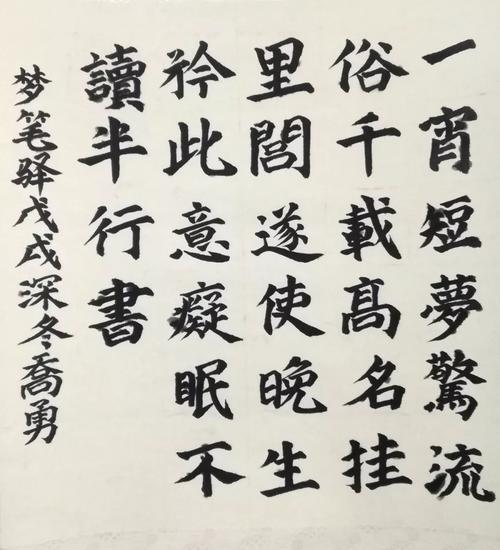 一宵短夢驚流
俗千載高名挂
里閭遂使晚生
矜此意癡眠不
讀半行書
梦笔驿戊戌深冬喬勇